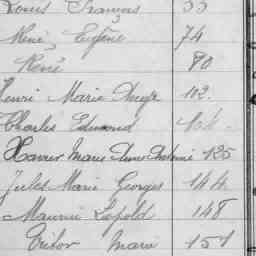 Louis François 55
René, Eugène 74
René 90
Henri Marie 102.
Charles Edmond 104.
Xavier Marie Anne Antoine 125
Jules Marie Georges 144
Maurice Léopold 148
Marie 151